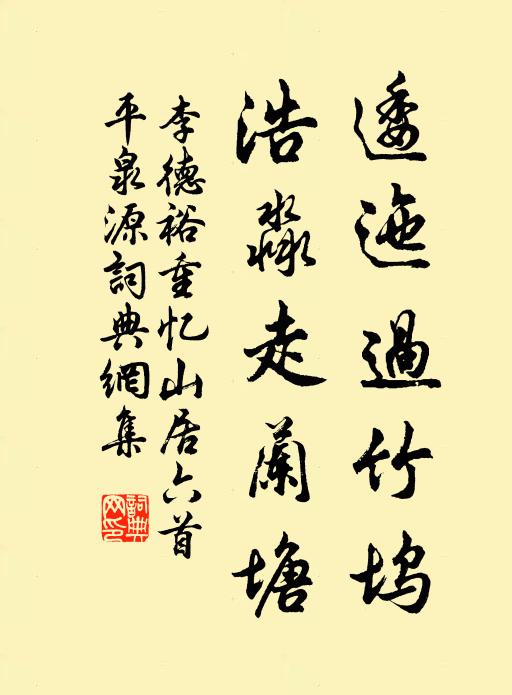 逶迤過竹坞
浩淼走蘭塘
李德裕重忆山居六首
平泉源詞典網集
詞典网印